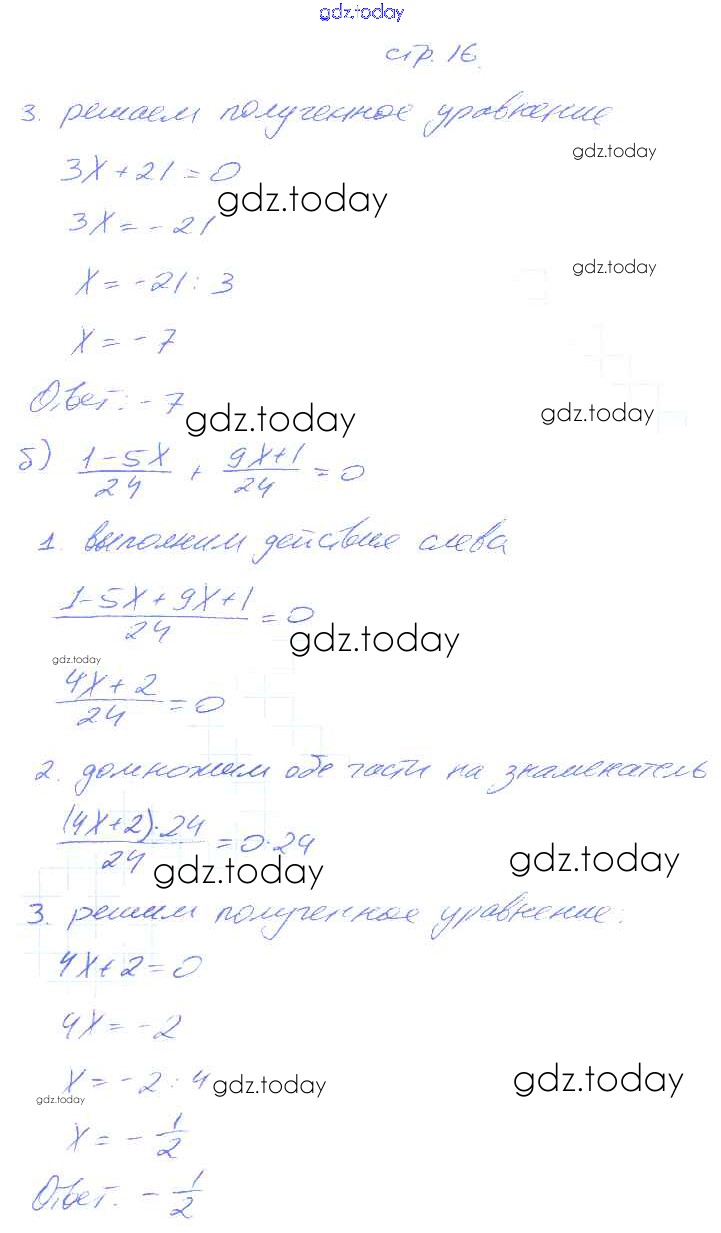 gdz.today
стр. 16.
3. решаем полученное уравнение
gdz.today
3x + 21 = 0
gdz.today
3x = - 21
gdz.today
x = -21 : 3
x = - 7
Ответ: - 7
gdz.today
gdz.today
б) (1-5x)/24 + (9x+1)/24 = 0
1. выполним действие слева
(1-5x+9x+1)/24 = 0
gdz.today
gdz.today
(4x+2)/24 = 0
2. домножим обе части на знаменатель
((4x+2)·24)/24 = 0·24
gdz.today
gdz.today
3. решим полученное уравнение:
4x+2 = 0
4x = -2
x = -2 : 4
gdz.today
gdz.today
gdz.today
x = - 1/2
Ответ. - 1/2